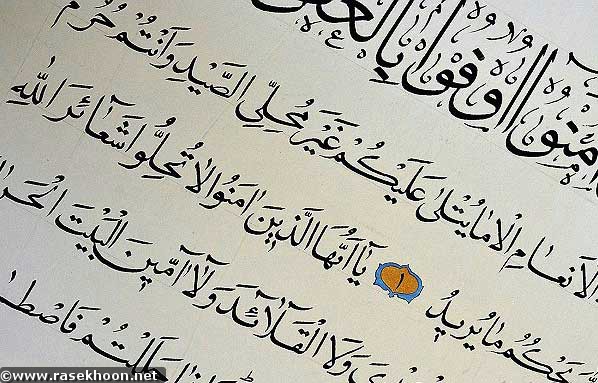 اٰمَنُوا اَوْفُوا بِالْعُقُ
الْاَنْعٰامِ اِلّٰا مٰا يُتْلىٰ عَلَيْكُمْ غَيْرَ مُحِلِّي الصَّيْدِ وَ اَنْتُمْ حُرُمٌ
يَحْكُمُ مٰا يُرِيدُ ١ يٰا اَيُّهَا الَّذِينَ اٰمَنُوا لٰا تُحِلُّوا شَعٰائِرَ اللّٰهِ
وَلَا الْقَلٰائِدَ وَلٰا آمِّينَ الْبَيْتَ الْحَرٰا
حَلَلْتُمْ فَاصْطٰا
© www.rasekhoon.net